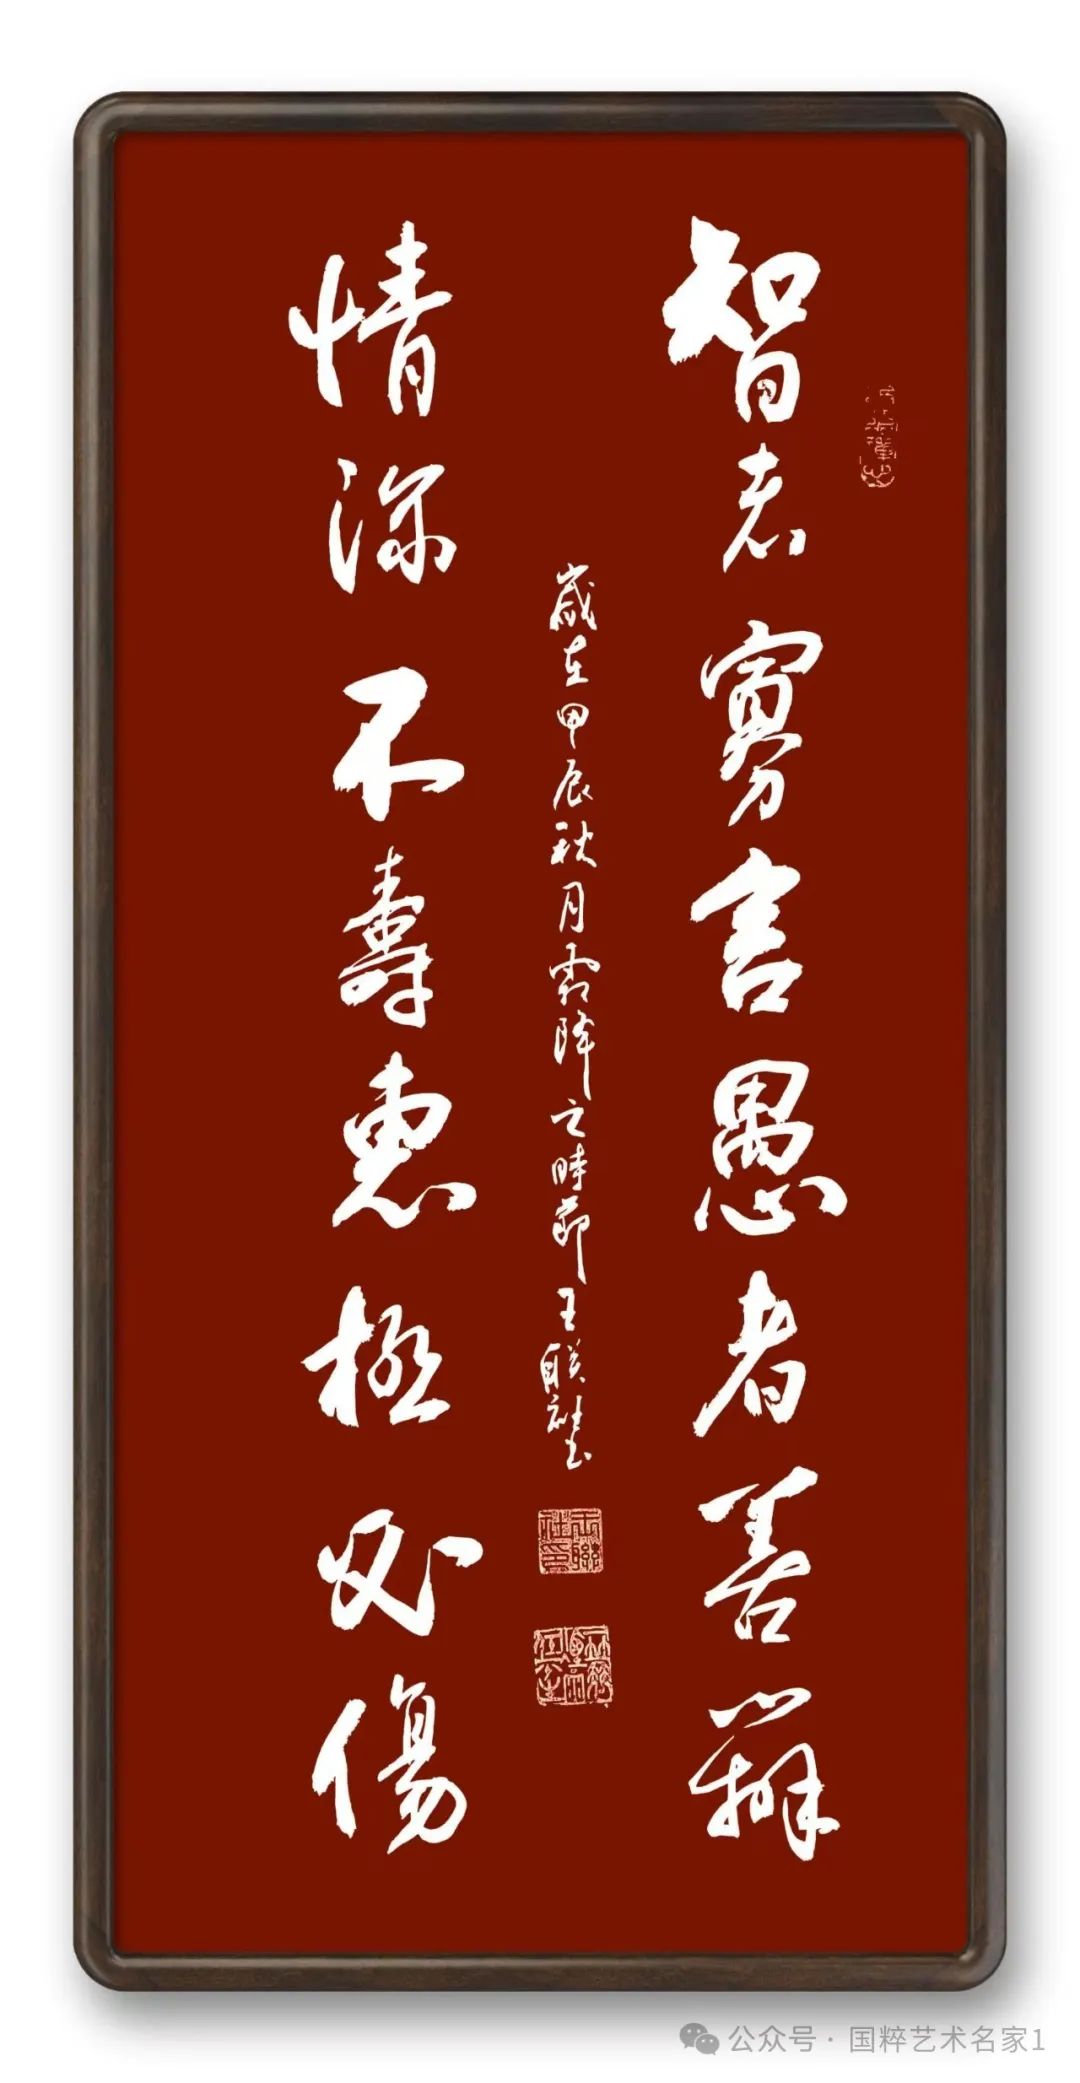 智者寡言愚者善辯
情深不壽惠極必傷
歲在甲辰秋月霜降之時節王联社书
王聯社印
公众号·国粹艺术名家1